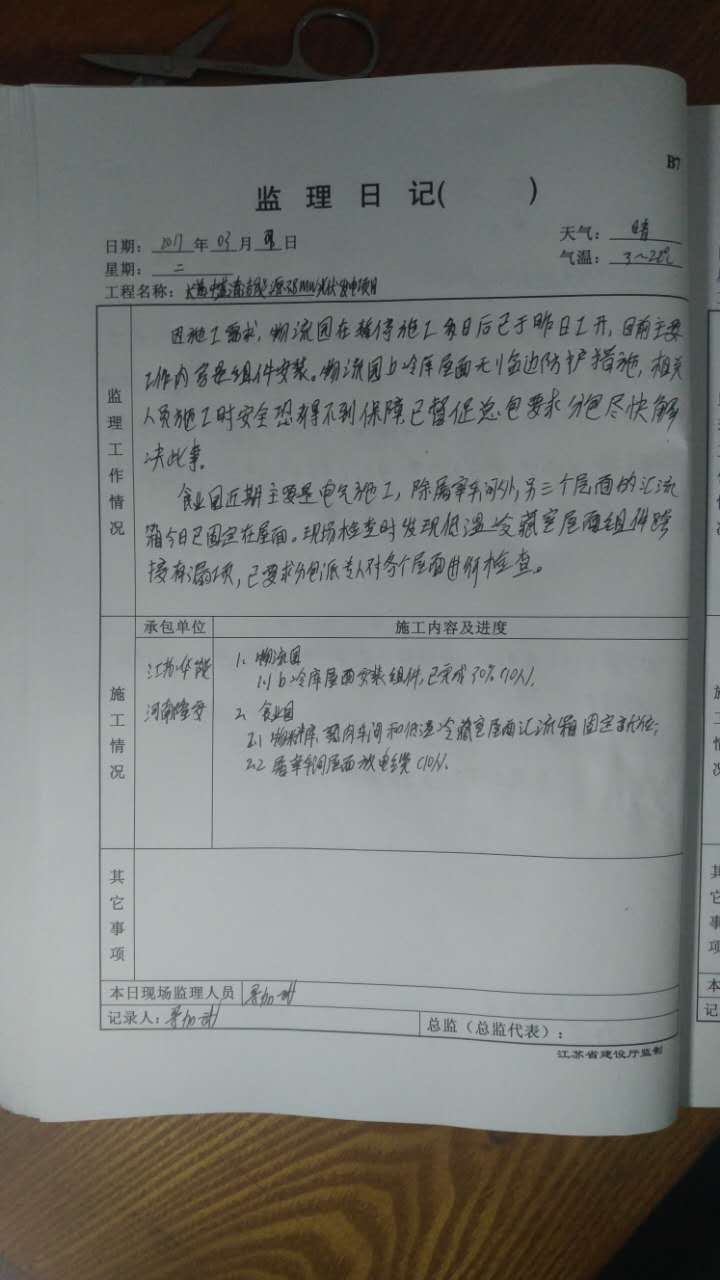 B7
监理日记( )
日期: 2017 年 03 月 日
天气: 晴
星期: 二
气温: 3～20℃
工程名称: 光伏发电项目
监理工作情况
因施工需求,物流园在暂停施工多日后已于昨日工开,目前主要
工作内容是组件安装。物流园b冷库屋面无临边防护措施,相关
人员施工时安全恐得不到保障已督促总包要求分包尽快解
决此事。
食业园近期主要是电气施工,除屠宰车间外,另三个屋面的汇流
箱今日已固定在屋面。现场检查时发现低温冷藏室屋面组件跨
接有漏项,已要求分包派专人对各个屋面进行检查。
承包单位 施工内容及进度
施工情况
江苏华能
河南
1. 物流园
1.1 b冷库屋面安装组件,已完成70%(10人).
2. 食业园
2.1 物料库,车间和低温冷藏室屋面汇流箱固定就位;
2.2 屠宰车间屋面放电缆(10人).
其它事项
本日现场监理人员
记录人:
总监(总监代表):
江苏省建设厅监制